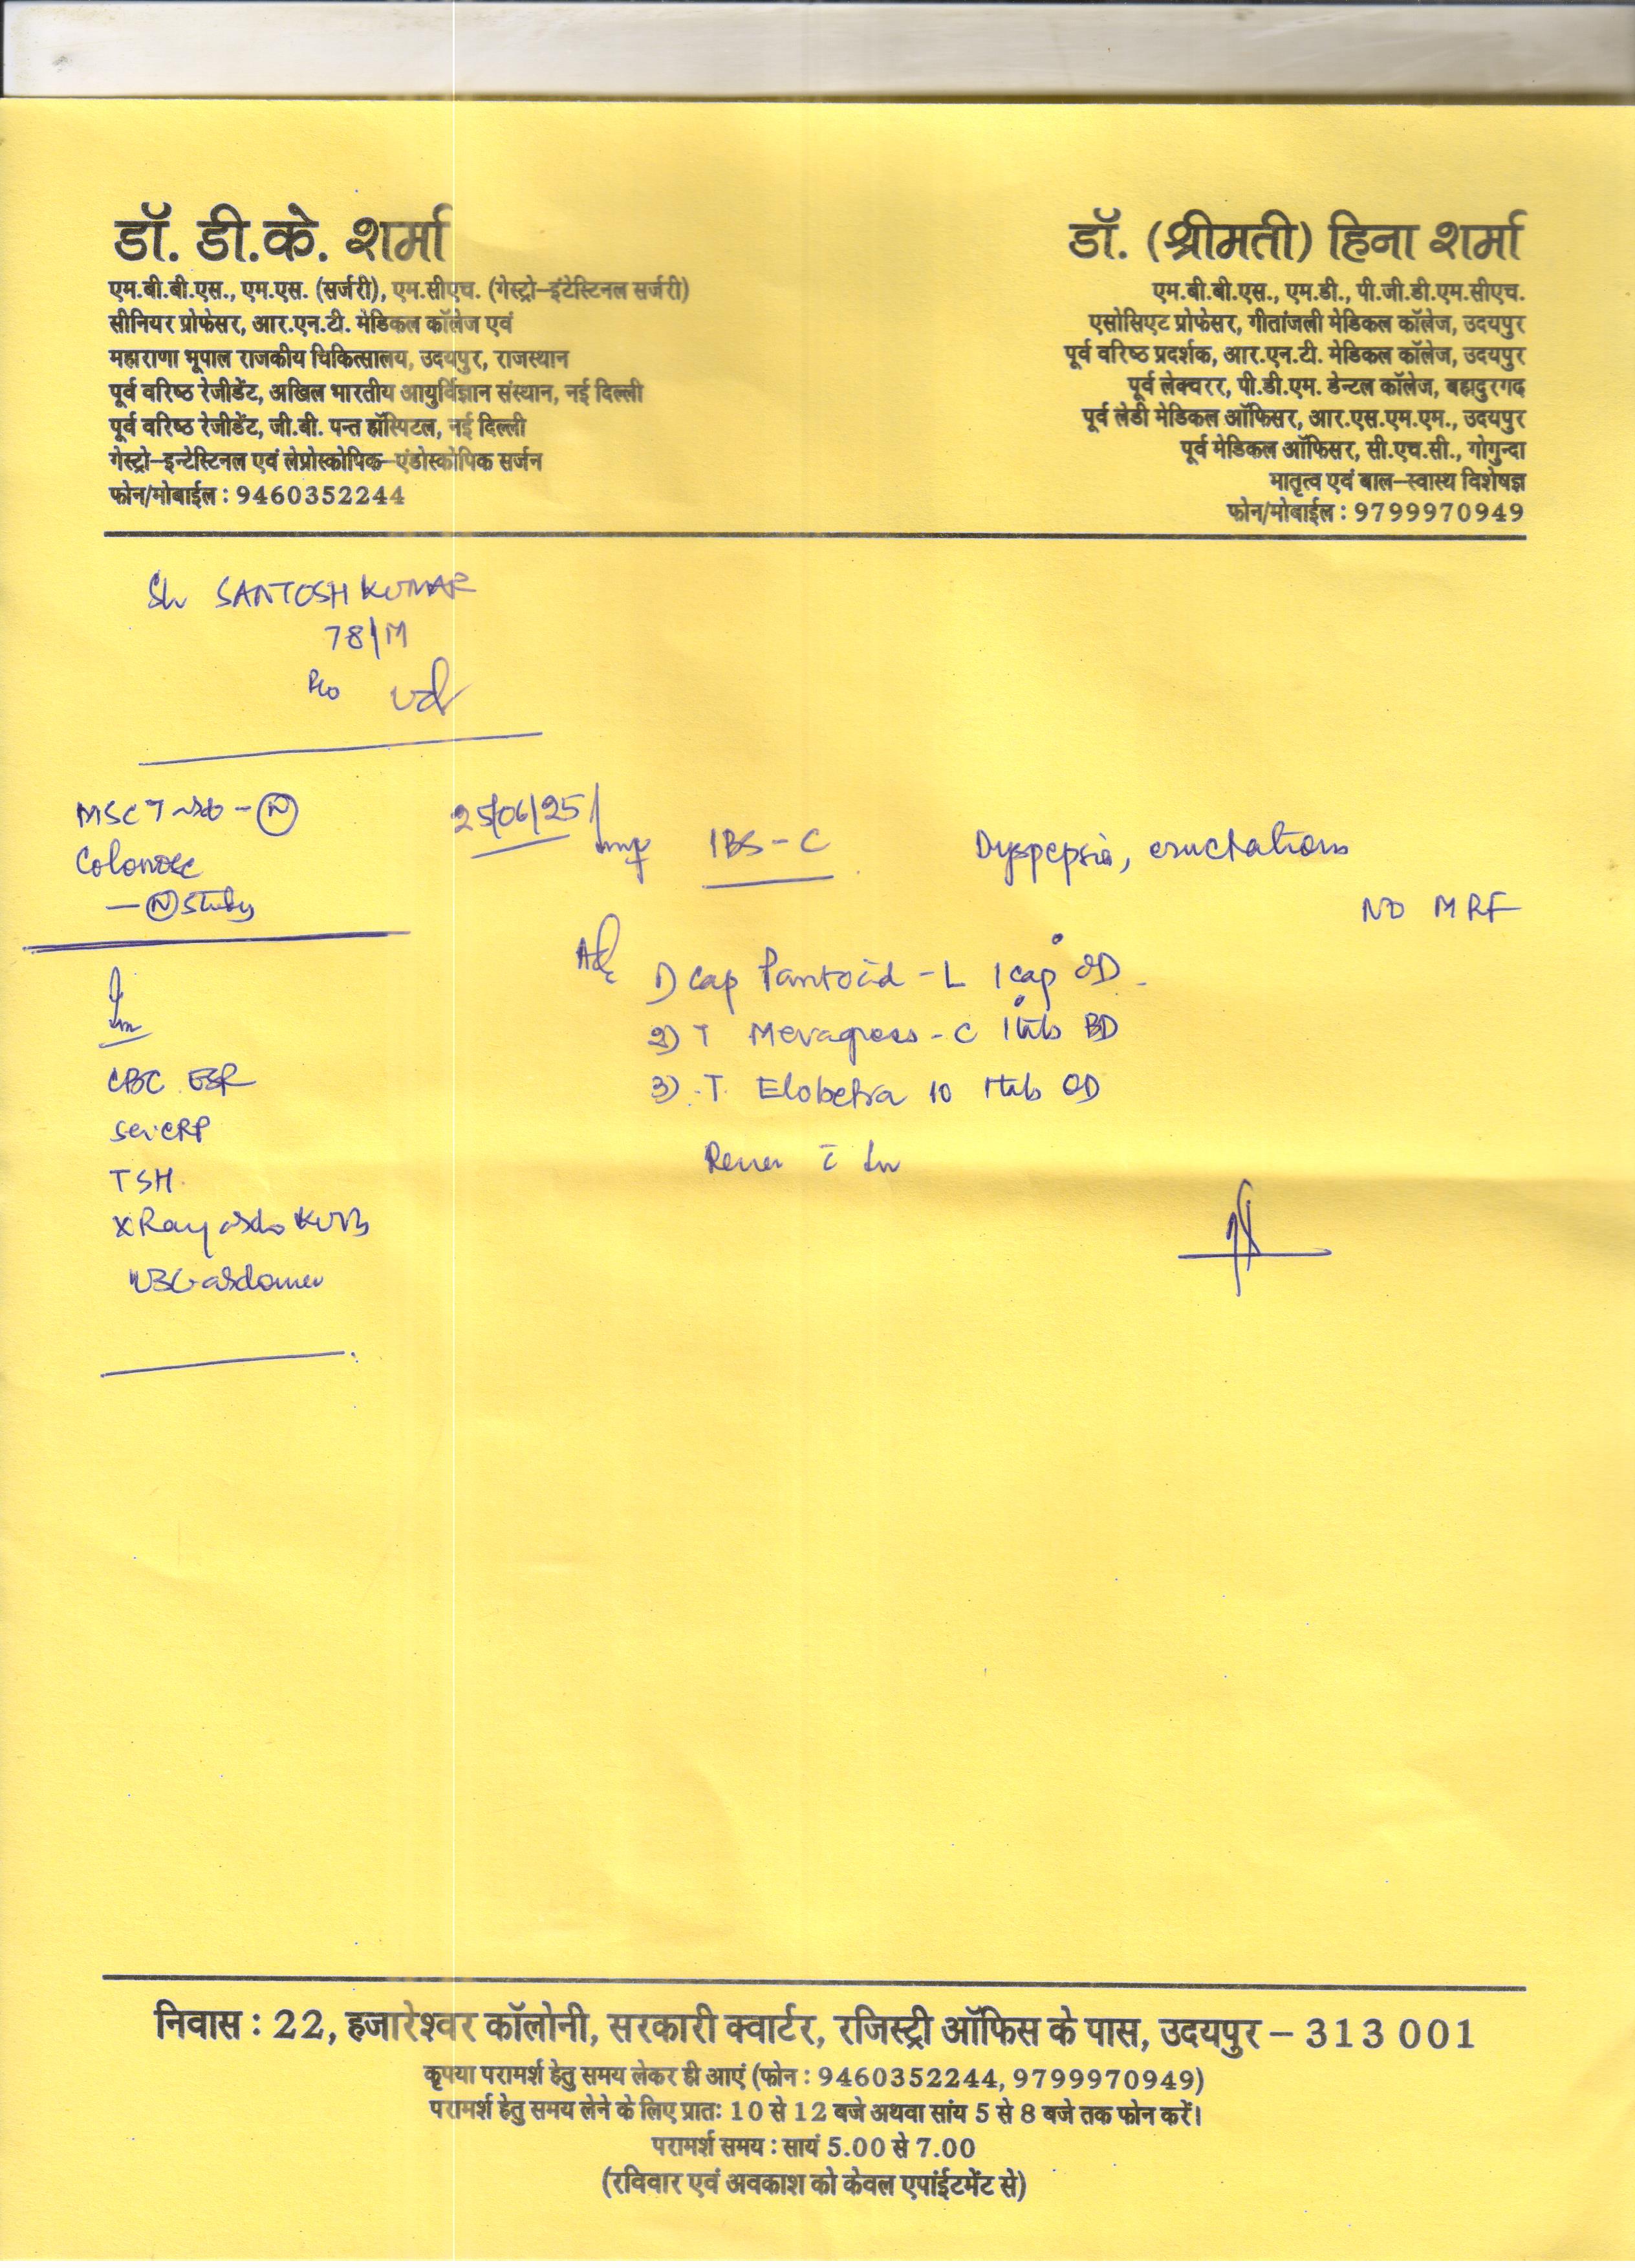 डॉ. डी.के. शर्मा
एम.बी.बी.एस., एम.एस. (सर्जरी), एम.सीएच. (गेस्ट्रो-इंटेस्टिनल सर्जरी)
सीनियर प्रोफेसर, आर.एन.टी. मेडिकल कॉलेज एवं
महाराणा भूपाल राजकीय चिकित्सालय, उदयपुर, राजस्थान
पूर्व वरिष्ठ रेजीडेंट, अखिल भारतीय आयुर्विज्ञान संस्थान, नई दिल्ली
पूर्व वरिष्ठ रेजीडेंट, जी.बी. पन्त हॉस्पिटल, नई दिल्ली
गेस्ट्रो-इन्टेस्टिनल एवं लेप्रोस्कोपिक-एंडोस्कोपिक सर्जन
फोन/मोबाईल : 9460352244
डॉ. (श्रीमती) हिना शर्मा
एम.बी.बी.एस., एम.डी., पी.जी.डी.एम.सीएच.
एसोसिएट प्रोफेसर, गीतांजली मेडिकल कॉलेज, उदयपुर
पूर्व वरिष्ठ प्रदर्शक, आर.एन.टी. मेडिकल कॉलेज, उदयपुर
पूर्व लेक्चरर, पी.डी.एम. डेन्टल कॉलेज, बहादुरगढ
पूर्व लेडी मेडिकल ऑफिसर, आर.एस.एम.एम., उदयपुर
पूर्व मेडिकल ऑफिसर, सी.एच.सी., गोगुन्दा
मातृत्व एवं बाल-स्वास्थ विशेषज्ञ
फोन/मोबाईल : 9799970949
Sh SANTOSH KUMAR
78/M
R/o Ud
MSCT - N
Colonosc
- N Study
25/06/25
Imp IBS-C
Dyspepsia, eructations
NO MRF
Adv
1) Cap Pantocid-L 1 cap OD
2) T 1 tab BD
3) T. Elobetra 10 1 tab OD
Inv
CBC ESR
Ser CRP
TSH
X Ray abdo KUB
USG abdomen
निवास : 22, हजारेश्वर कॉलोनी, सरकारी क्वार्टर, रजिस्ट्री ऑफिस के पास, उदयपुर - 313 001
कृपया परामर्श हेतु समय लेकर ही आएं (फोन : 9460352244, 9799970949)
परामर्श हेतु समय लेने के लिए प्रातः 10 से 12 बजे अथवा सांय 5 से 8 बजे तक फोन करें।
परामर्श समय : सायं 5.00 से 7.00
(रविवार एवं अवकाश को केवल एपांईटमेंट से)